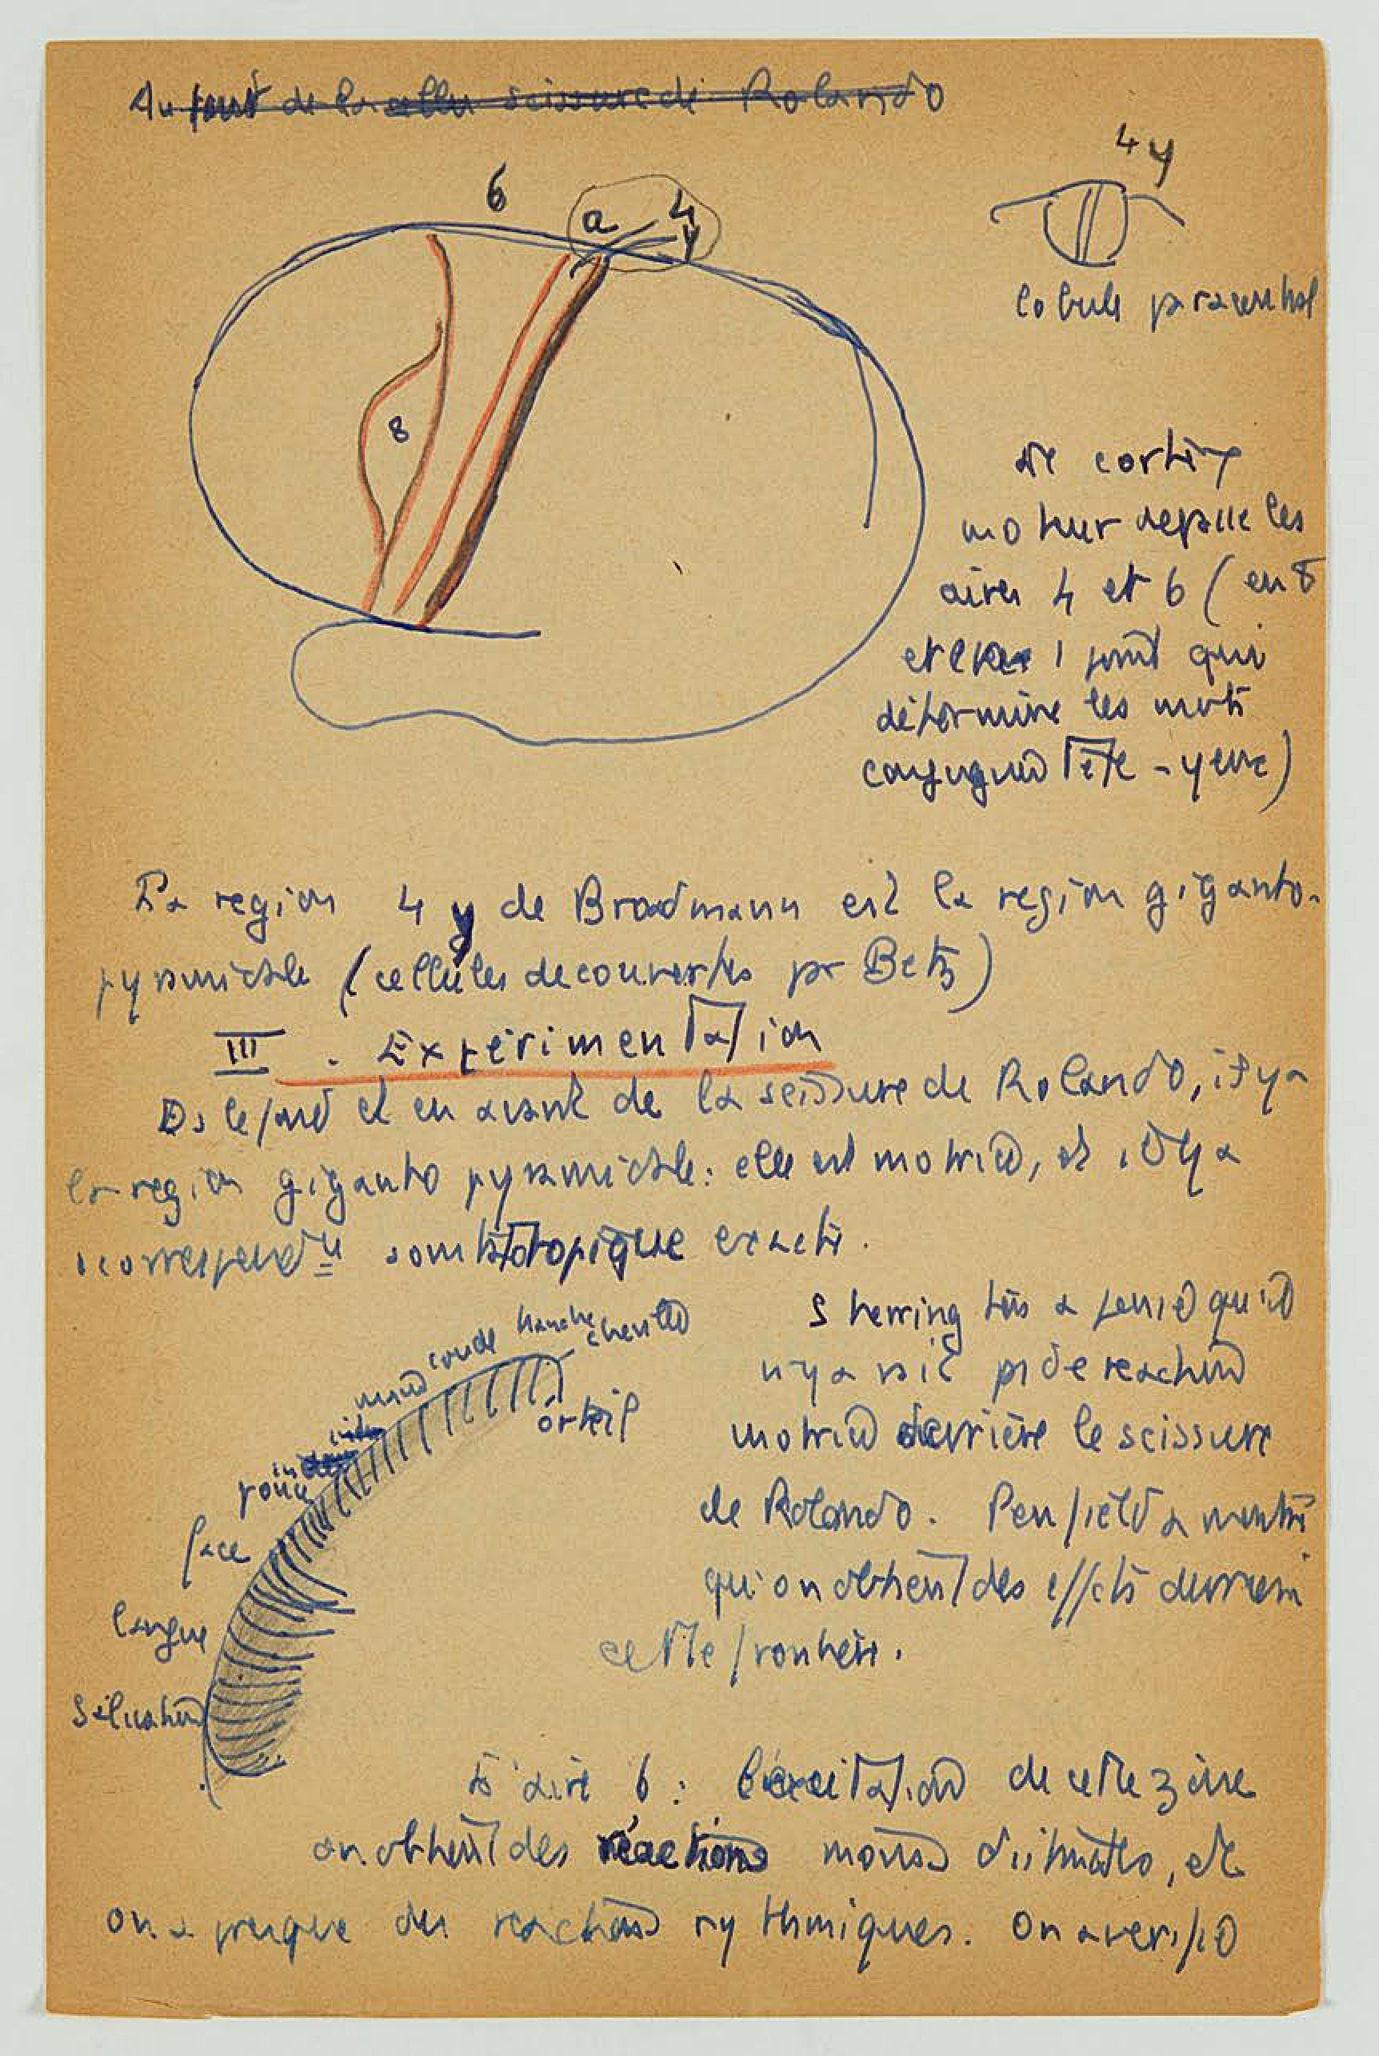 Au fond de la scissure de Rolando
6
a 4
γ
4 γ
lobule paracentral
8
le cortex
moteur depasse les
aires 4 et 6 (en 8
1 point qui
détermine les mvts
conjugués Tête - yeux)
La region 4 γ de Brodmann est la region giganto-
pyramidale (cellules decouvertes pr Betz)
III - Experimentation
Ds le fond et en avant de la scissure de Rolando, il y a
la region giganto pyramidale: elle est motrice, et il y a
1 correspondce somatotopique exacte.
hanche
cheville
coude
main
orteil
index
pouce
face
langue
Salivation
Sherrington a pensé qu'il
n'y avait pas de reaction
motrice derrière la scissure
de Rolando. Penfield a montré
qu'on obtient des effets derriere
cette frontière.
L'aire 6 : l'excitation de cette zone
on obtient des réactions moins distinctes, et
on a presque des reactions rythmiques. On a verifié